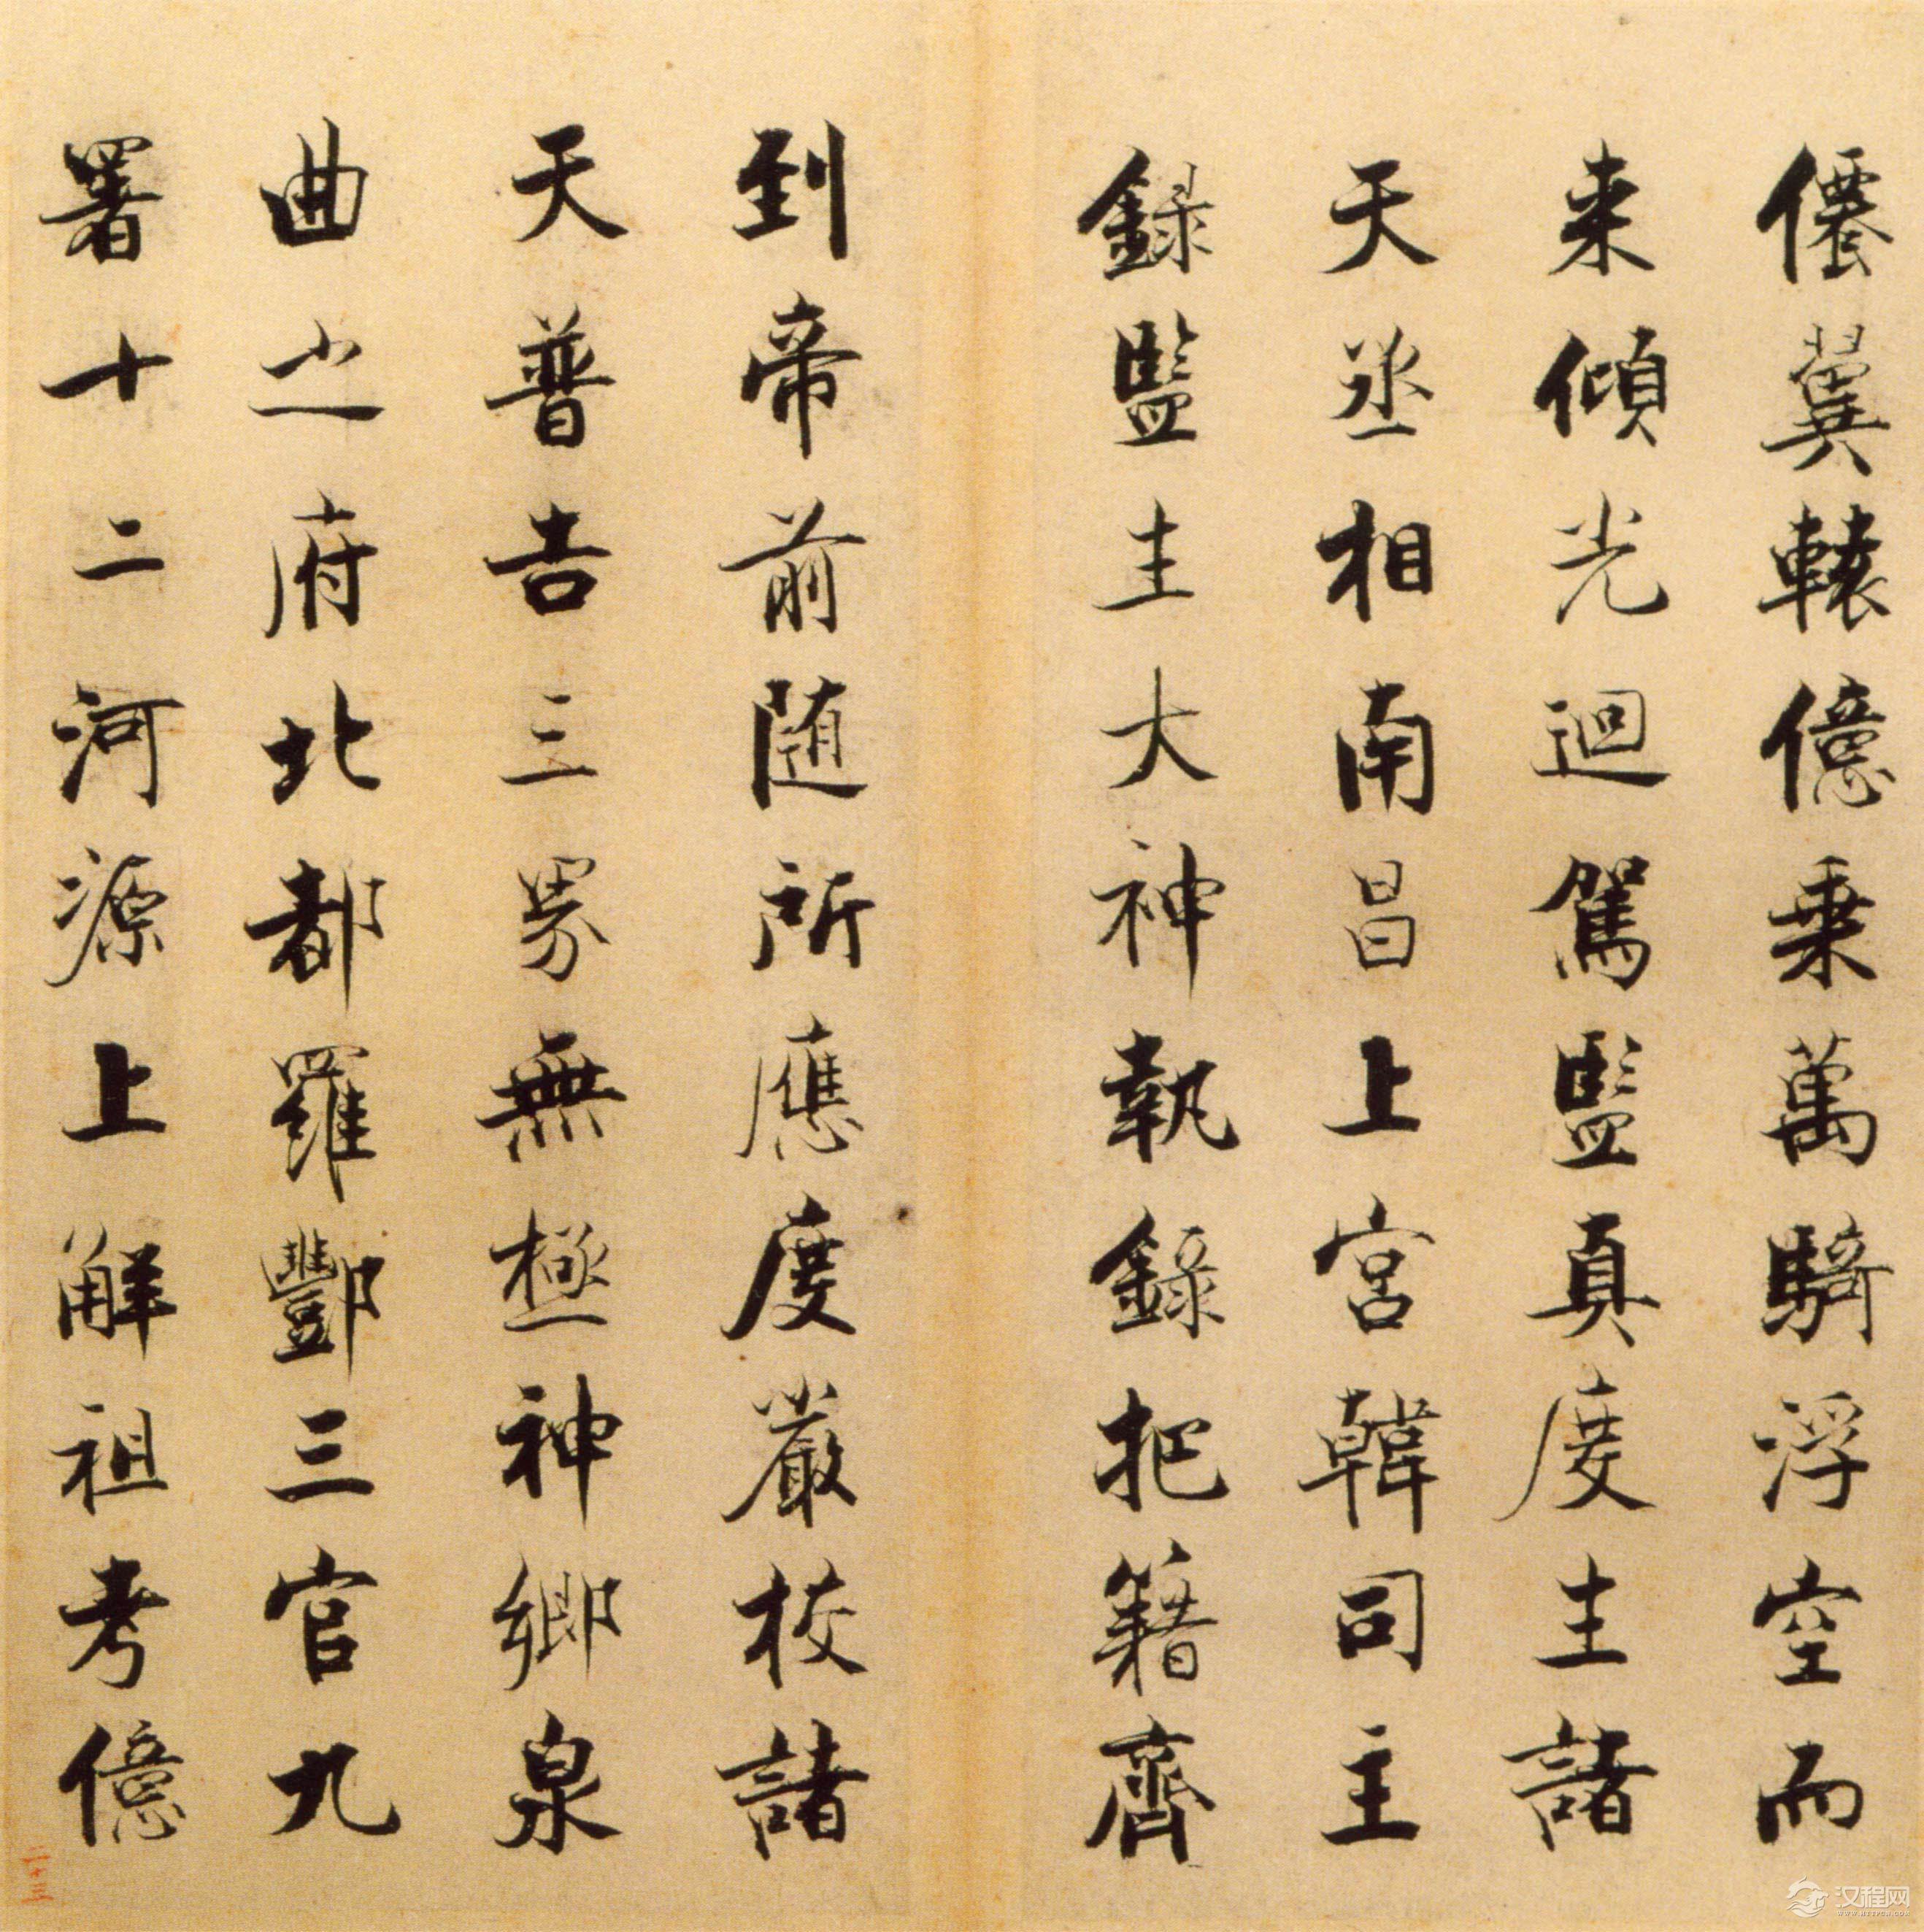 僊翼轅億乗萬騎浮空而
来傾光迴駕監真度主諸
天丞相南昌上宮韓司主
録監主大神執録把籍齊
到帝前随所應度嚴校諸
天普告三界無極神鄉泉
曲之府北都羅酆三官九
署十二河源上解祖考億
二十三
汉程网